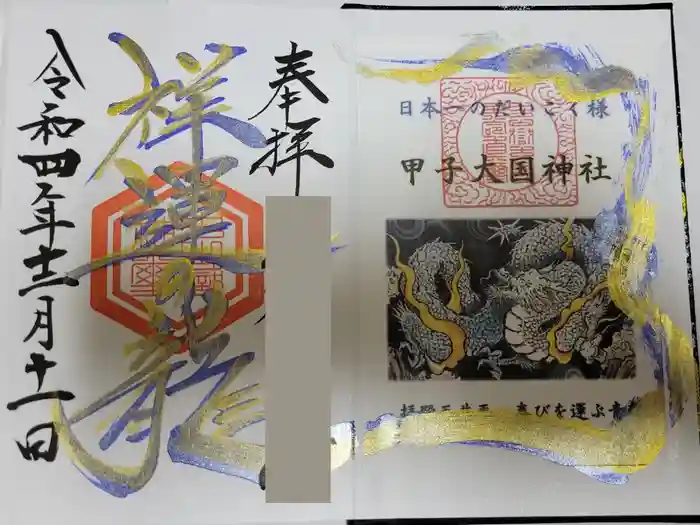 奉拝
祥運の龍
令和四年十二月十一日
日本一のだいこく様
甲子大国神社
喜びを運ぶ